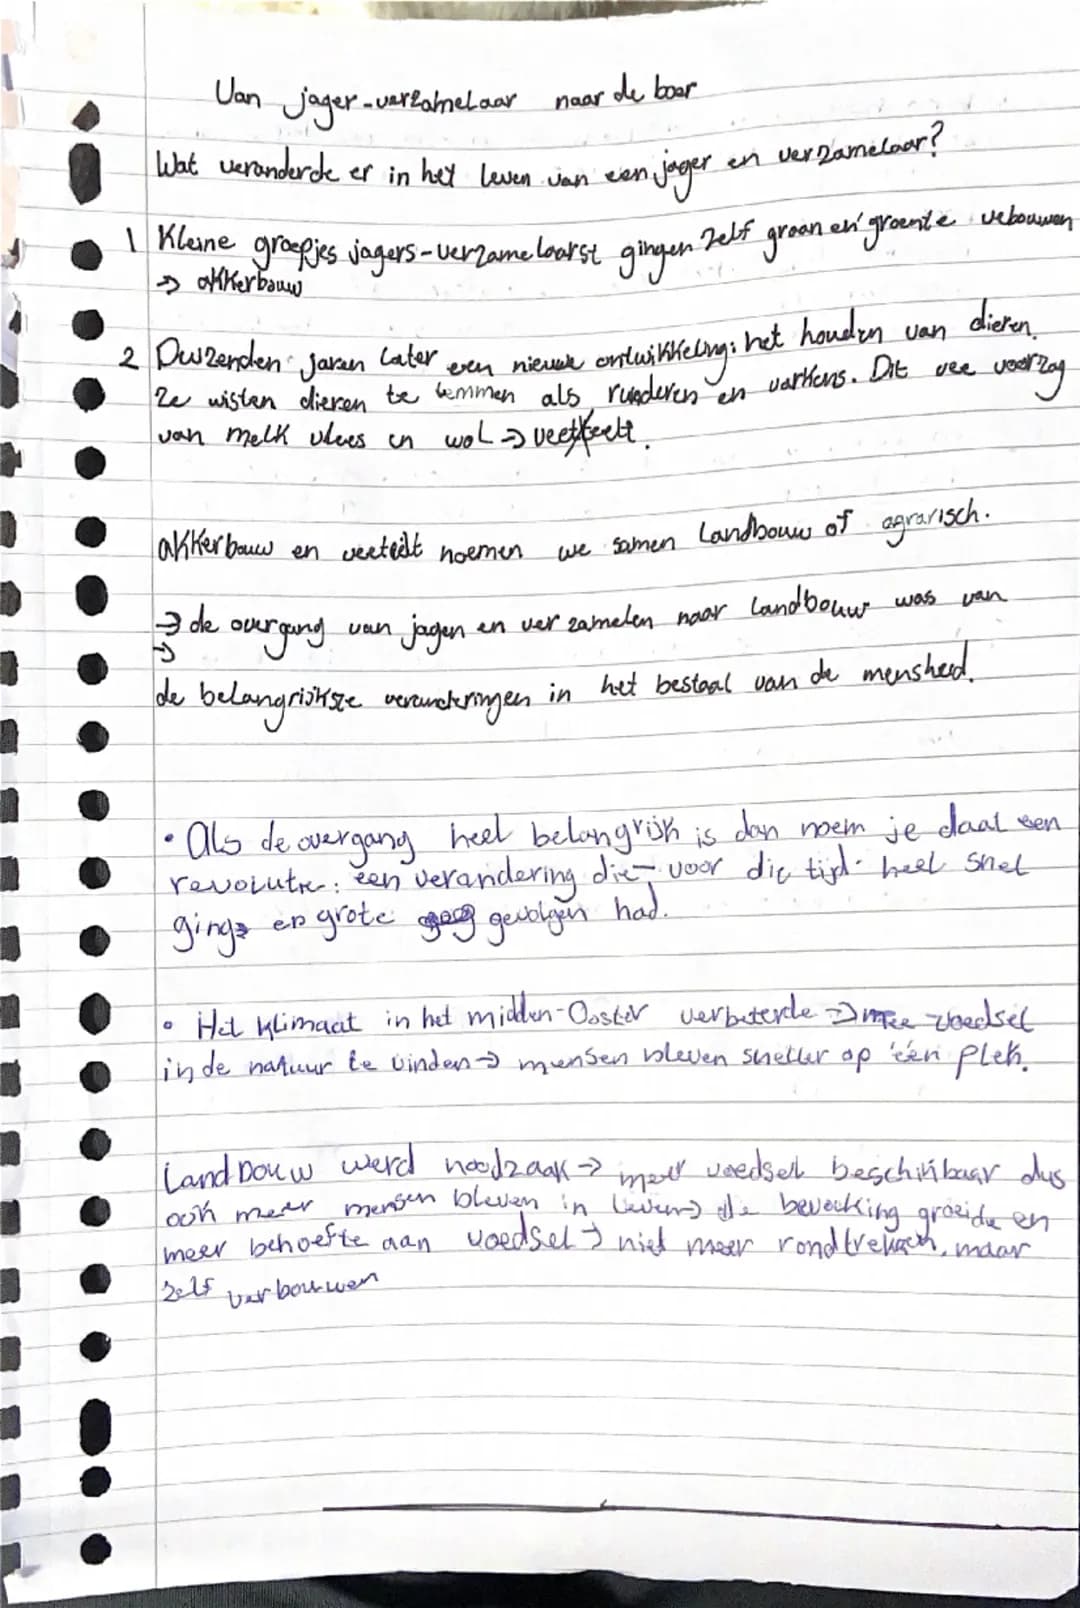 Van jager-verzamelaar naar de boer
Wat veranderde er in het leven van een jager en verzamelaar?
1 Kleine groepjes jagers-verzamelaarst gingen zelf graan en groente vebouwen
→ akkerbouw
2 Duizenden jaren later een nieuwe ontwikkeling: het houden van dieren.
Ze wisten dieren te temmen als runderen en varkens. Dit vee voorzag
van melk vlees en wol → veeteelt.
akkerbouw en veeteelt noemen we samen landbouw of agrarisch.
→ de overgang van jagen en verzamelen naar landbouw was van
→
de belangrijkste veranderingen in het bestaal van de mensheid.
• Als de overgang heel belangrijk is dan noem je daal een
revolutie: een verandering die voor die tijd heel snel
ging en grote gevolgen had.
• Het klimaat in het midden-Ooster verbeterde → mee voedsel
in de natuur te vinden → mensen bleven sneller op één plek.
Landbouw werd noodzaak → meer voedsel beschikbaar dus
ook meer mensen bleven in leven → de bevolking groeide en
meer behoefte aan voedsel → niet meer rondtrekken, maar
zelf verbouwen